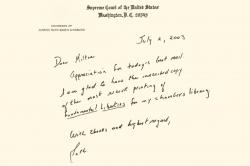 Supreme Court of the United States
Washington, D. C. 20543
CHAMBERS OF
JUSTICE RUTH BADER GINSBURG
July 2, 2003
Dear Milton
Appreciation for today's best mail.
I am glad to have the inscribed copy
of the most recent printing of
Fundamental Liberties for my chambers library
With cheers and highest regard,
Ruth